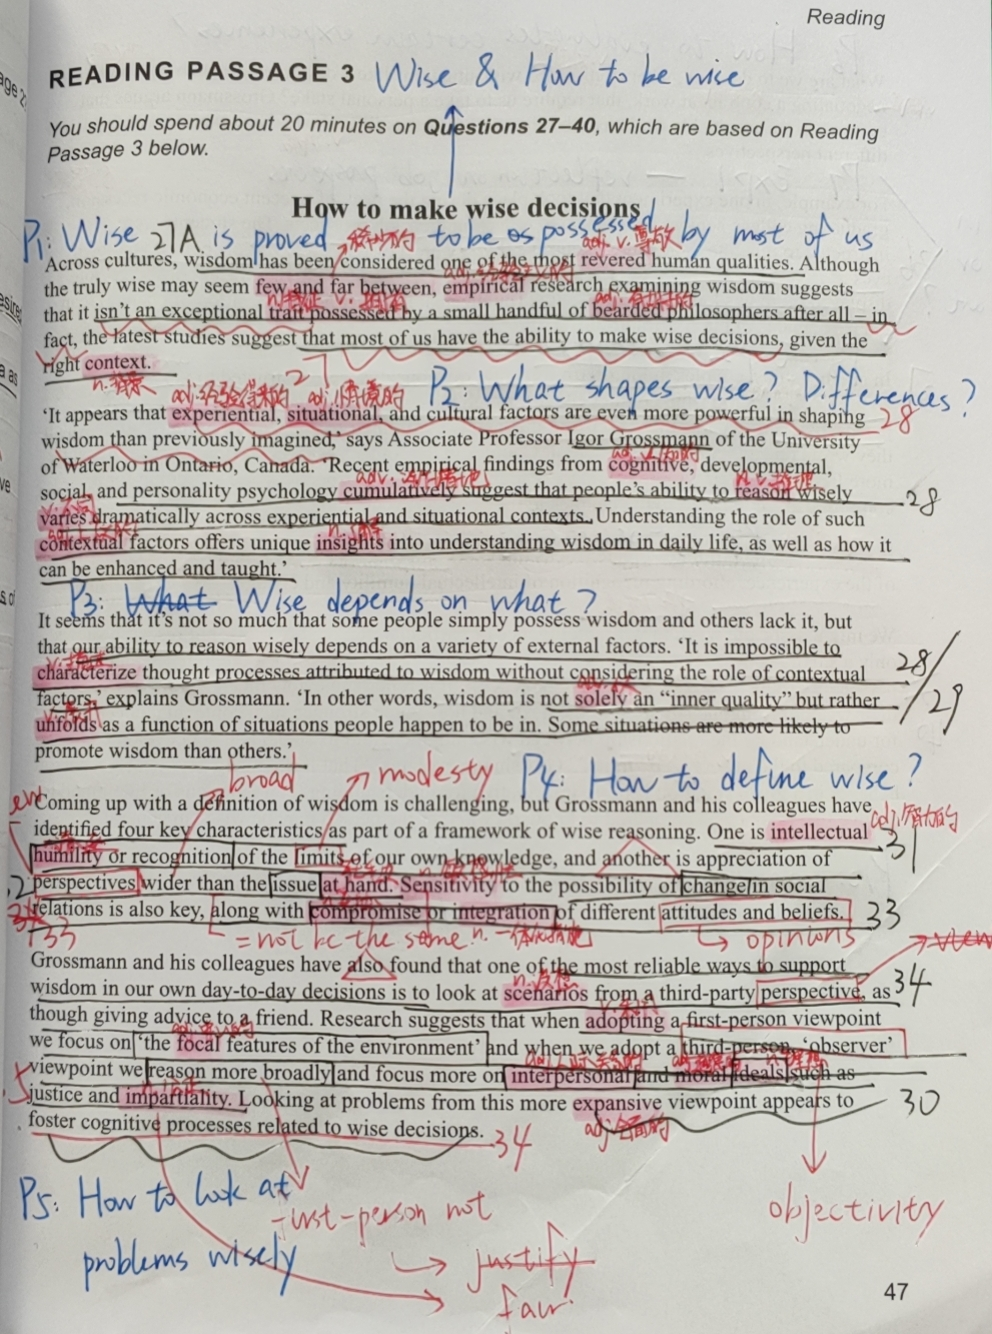 Reading
READING PASSAGE 3 Wise & How to be wise
You should spend about 20 minutes on Questions 27–40, which are based on Reading
Passage 3 below.
How to make wise decisions
P1: Wise 27A is proved to be as possessed by most of us
Across cultures, wisdom has been considered one of the most revered human qualities. Although
the truly wise may seem few and far between, empirical research examining wisdom suggests
that it isn't an exceptional trait possessed by a small handful of bearded philosophers after all – in
fact, the latest studies suggest that most of us have the ability to make wise decisions, given the
right context.
n.背景 27 P2: What shapes wise? Differences?
'It appears that experiential, situational, and cultural factors are even more powerful in shaping 28
wisdom than previously imagined,' says Associate Professor Igor Grossmann of the University
of Waterloo in Ontario, Canada. 'Recent empirical findings from cognitive, developmental,
social, and personality psychology cumulatively suggest that people's ability to reason wisely 28
varies dramatically across experiential and situational contexts. Understanding the role of such
contextual factors offers unique insights into understanding wisdom in daily life, as well as how it
can be enhanced and taught.'
P3: What Wise depends on what?
It seems that it's not so much that some people simply possess wisdom and others lack it, but
that our ability to reason wisely depends on a variety of external factors. 'It is impossible to
characterize thought processes attributed to wisdom without considering the role of contextual 28
factors,' explains Grossmann. 'In other words, wisdom is not solely an "inner quality" but rather 29
unfolds as a function of situations people happen to be in. Some situations are more likely to
promote wisdom than others.'
broad modesty P4: How to define wise?
Coming up with a definition of wisdom is challenging, but Grossmann and his colleagues have
identified four key characteristics as part of a framework of wise reasoning. One is intellectual
humility or recognition of the limits of our own knowledge, and another is appreciation of 31
perspectives wider than the issue at hand. Sensitivity to the possibility of change in social
relations is also key, along with compromise or integration of different attitudes and beliefs. 33
33 = not be the same opinions view
Grossmann and his colleagues have also found that one of the most reliable ways to support
wisdom in our own day-to-day decisions is to look at scenarios from a third-party perspective, as 34
though giving advice to a friend. Research suggests that when adopting a first-person viewpoint
we focus on 'the focal features of the environment' and when we adopt a third-person, 'observer'
viewpoint we reason more broadly and focus more on interpersonal and moral ideals such as
justice and impartiality. Looking at problems from this more expansive viewpoint appears to 30
foster cognitive processes related to wise decisions. 34
P5: How to look at
first-person not objectivity
problems wisely justify
fair
47